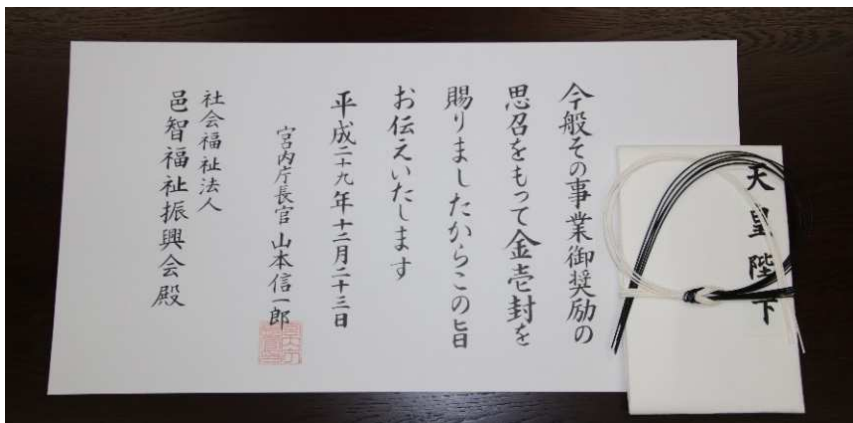 今般その事業御奨励の
思召をもって金壱封を
賜りましたからこの旨
お伝えいたします
平成二十九年十二月二十三日
宮内庁長官 山本信一郎
社会福祉法人
邑智福祉振興会殿
天皇陛下